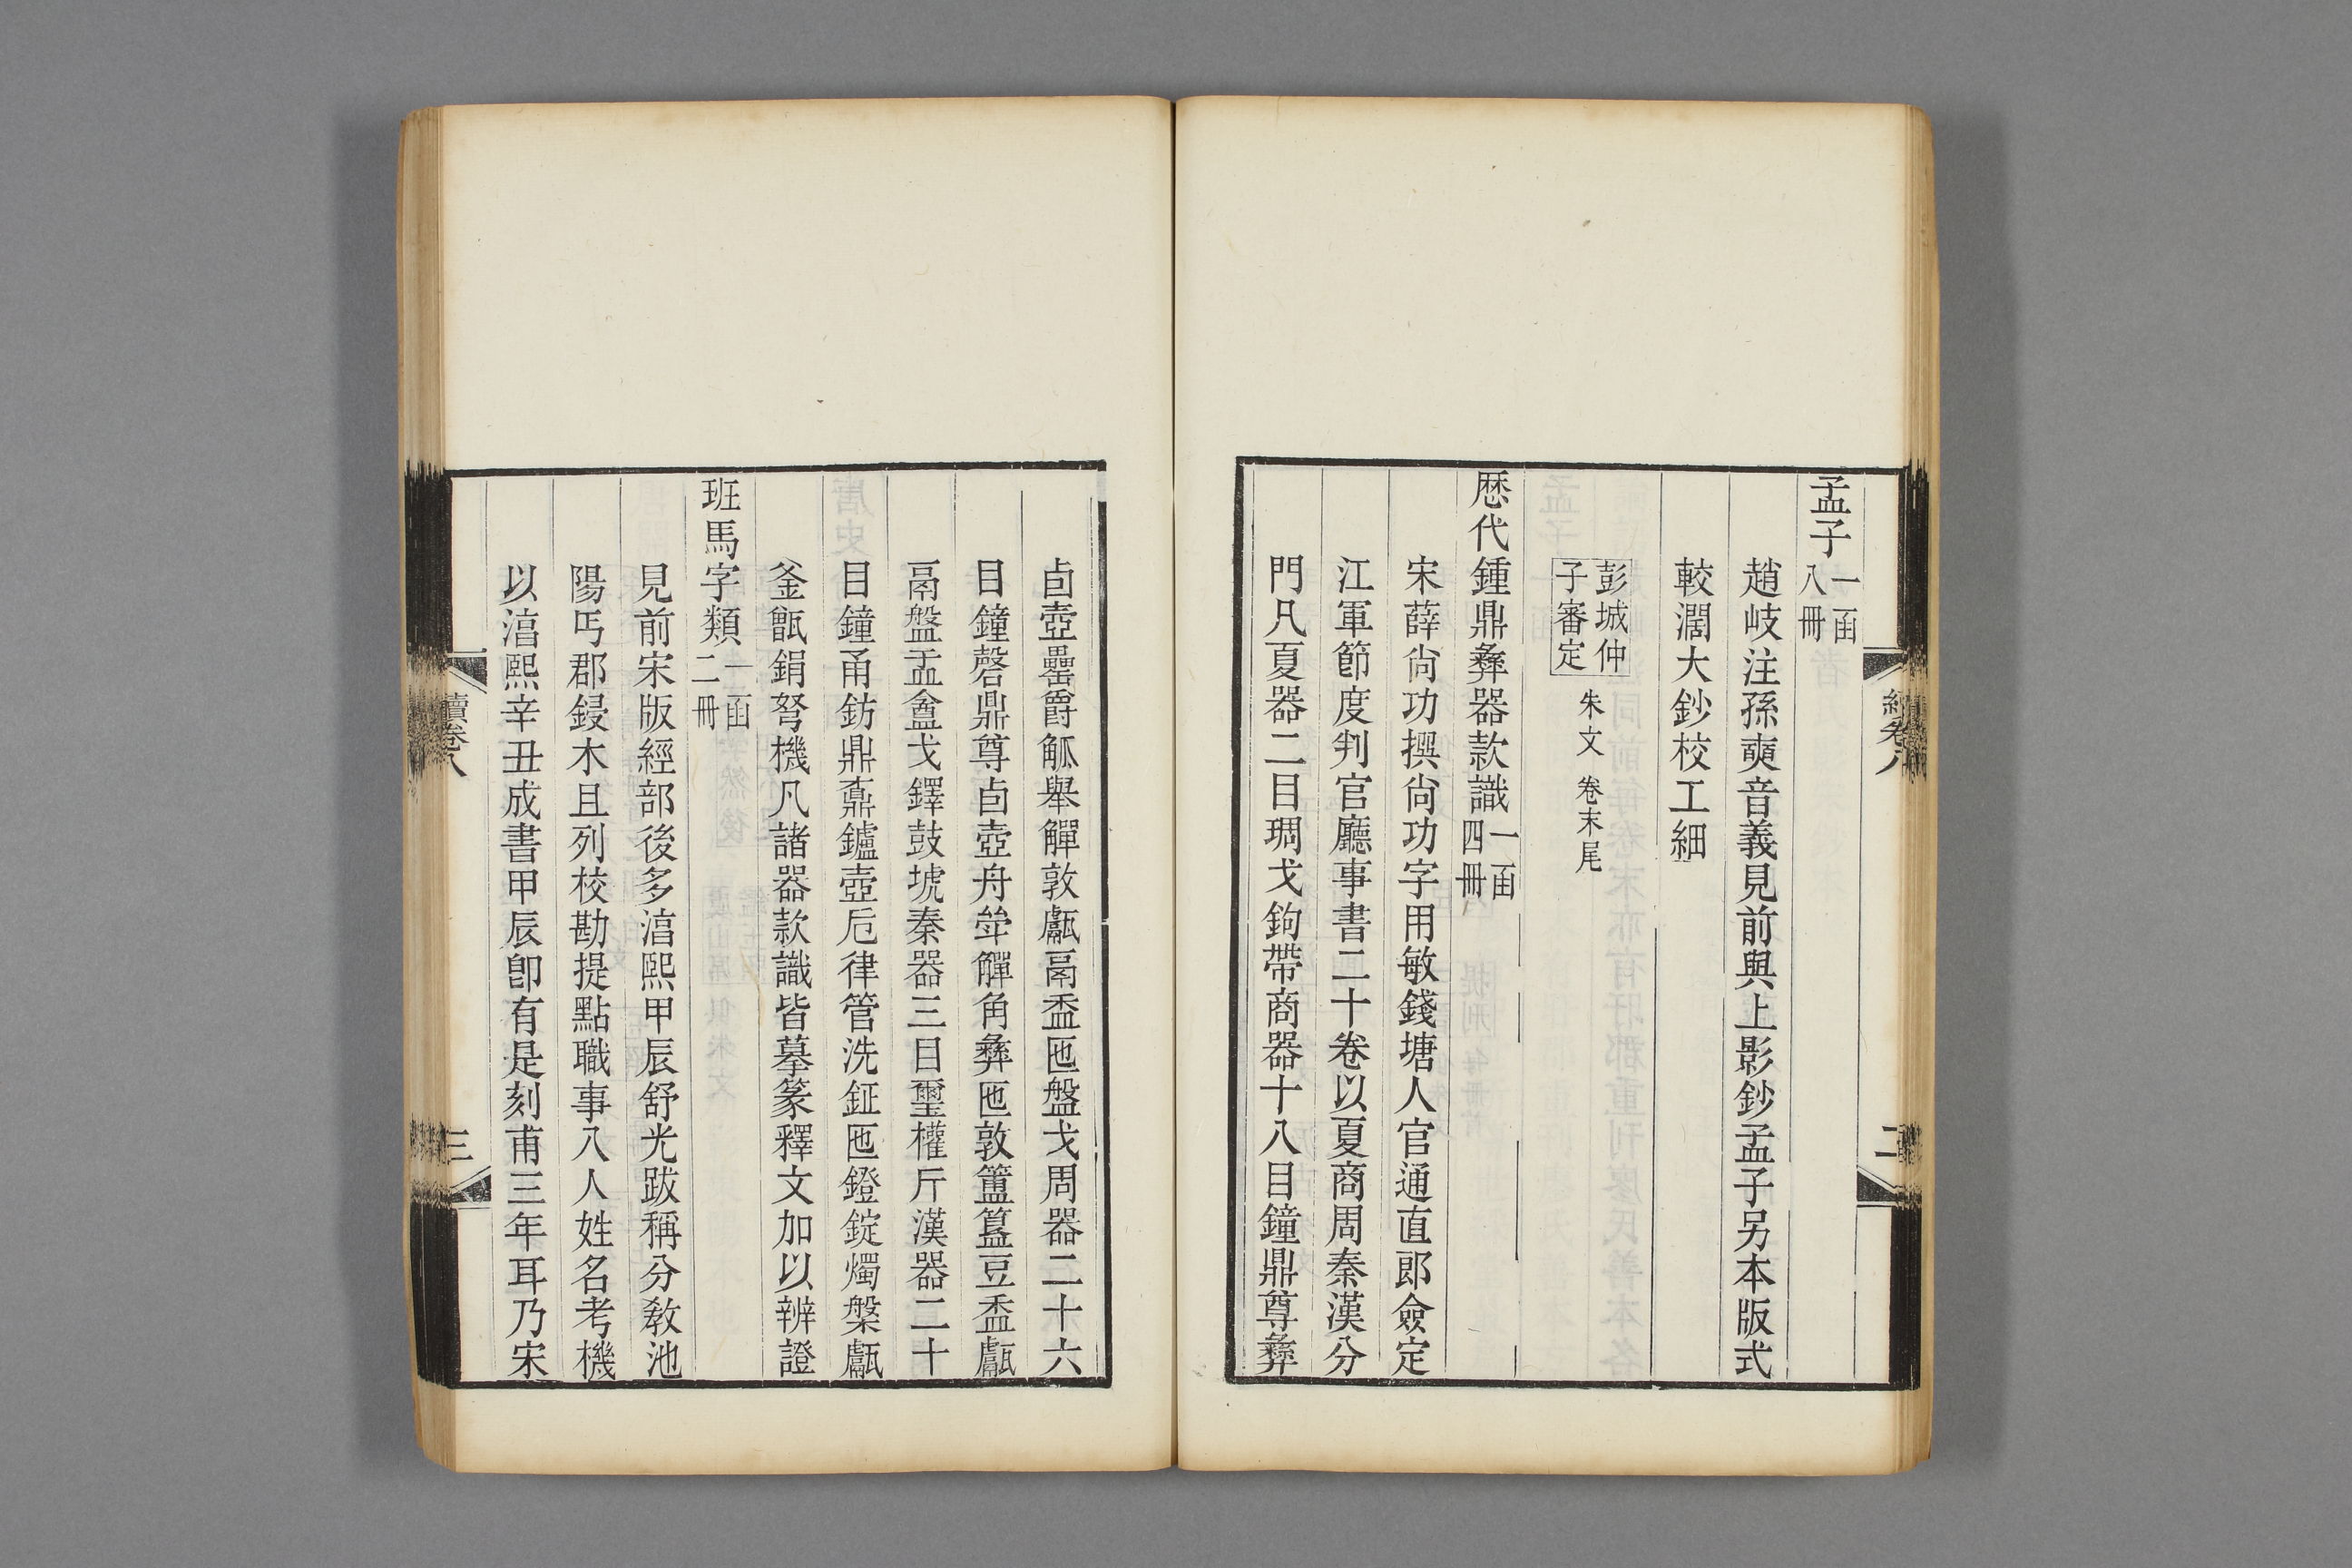 孟子一函八冊
趙岐注孫奭音義見前與上影鈔孟子另本版式
較濶大鈔校工細
彭城仲子審定 朱文 卷末尾
歷代鍾鼎彝器款識一函四冊
宋薛尙功撰尙功字用敏錢塘人官通直郎僉定
江軍節度判官廳事書二十卷以夏商周秦漢分
門凡夏器二目琱戈鉤帶商器十八目鐘鼎尊彝
卣壺罍爵觚舉觶敦甗鬲盉匜盤戈周器二十六
目鐘磬鼎尊卣壺舟斝觶角彝匜敦簠簋豆盉甗
鬲盤盂盦戈鐸鼓琥秦器三目璽權斤漢器二十
目鐘甬鈁鼎鼒鑪壺卮律管洗鉦匜鐙錠燭槃甗
釜甑鋗弩機凡諸器款識皆摹篆釋文加以辨證
班馬字類一函二冊
見前宋版經部後多湻熙甲辰舒光跋稱分敎池
陽丐郡鋟木且列校勘提點職事八人姓名考機
以湻熙辛丑成書甲辰卽有是刻甫三年耳乃宋
續卷八
三
卷八
二